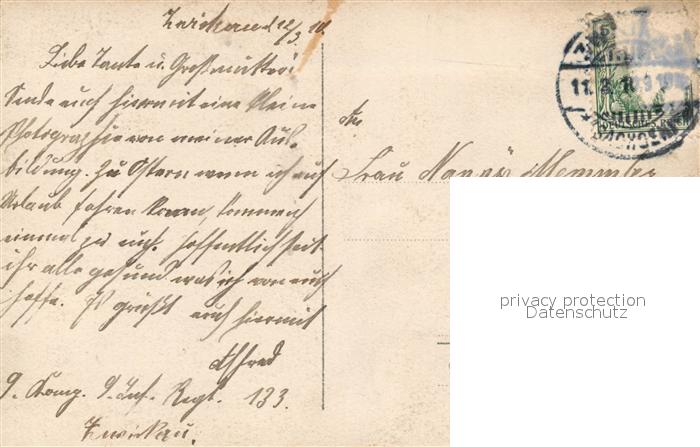 Zwickau d. 12/3. 10.
Liebe Tante u. Großmutter!
Sende euch hiermit eine kleine
Photographie von meiner Aus-
bildung. Zu Ostern wenn ich auf
Urlaub fahren kann, komme ich
einmal zu euch. Hoffentlich seit
ihr alle gesund was ich von euch
hoffe. Es grüßt euch hiermit
Alfred
9. Komp. 9. Inf. Regt. 133.
Zwickau.
An
Frau
5
11. 3.
DEUTSCHES REICH
* (SACHSEN)
privacy protection
Datenschutz